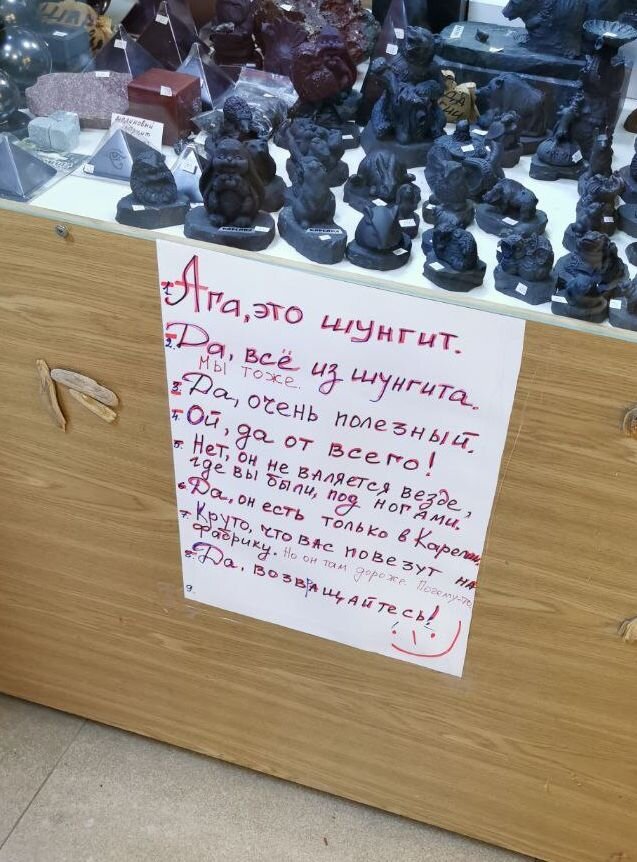 малиновый
кварцит
КАРЕЛИЯ
1. Ага, это шунгит.
2. Да, всё из шунгита.
Мы тоже.
3. Да, очень полезный.
4. Ой, да от всего!
5. Нет, он не валяется везде,
где вы были, под ногами.
6. Да, он есть только в Карелии.
7. Круто, что вас повезут на
фабрику. Но он там дороже. Почему-то
8. Да, возвращайтесь!
9.